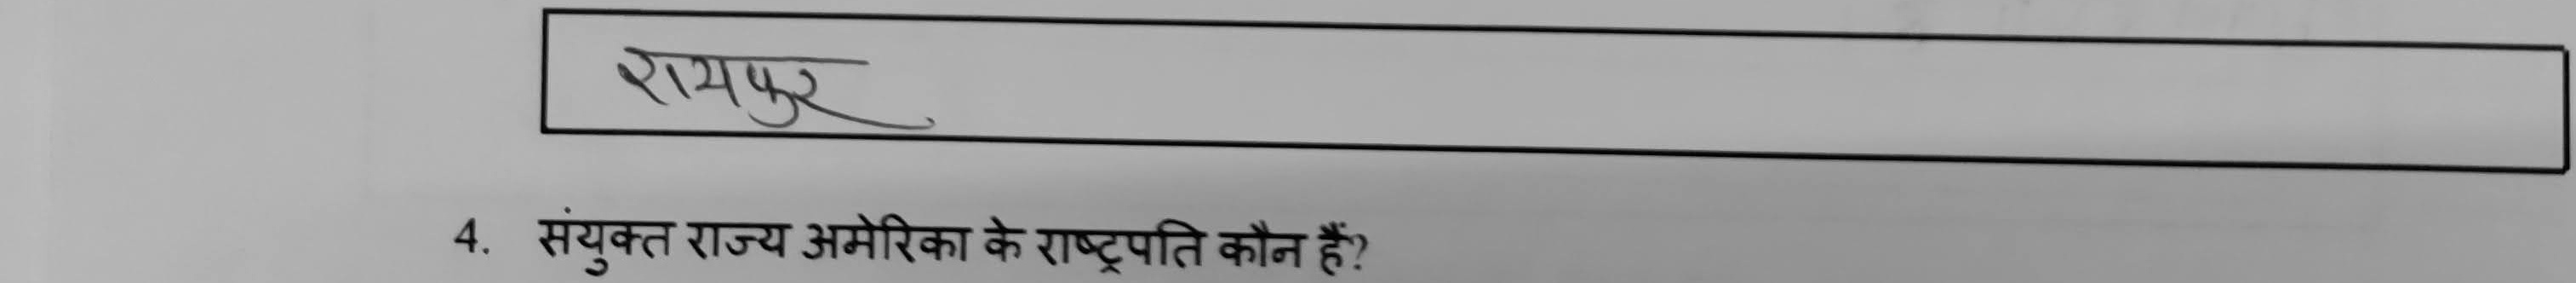 रायपुर
4. संयुक्त राज्य अमेरिका के राष्ट्रपति कौन हैं?